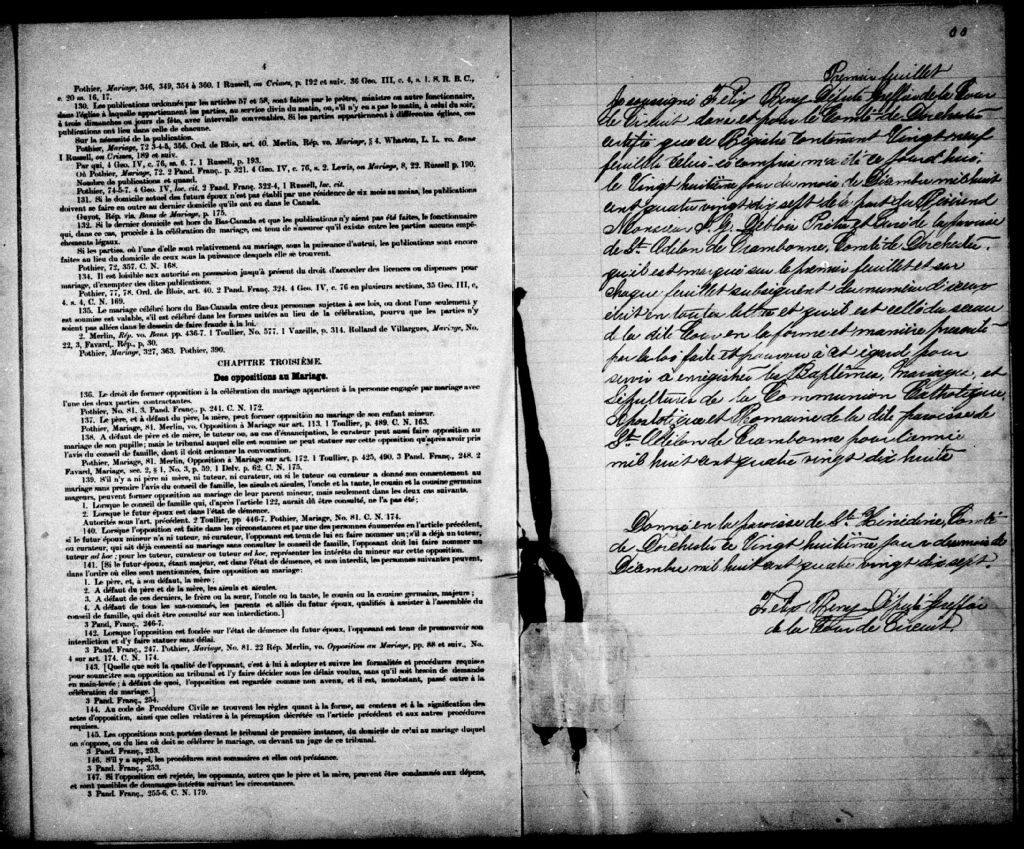 4
Pothier, Mariage, 346, 349, 354 à 360. 1 Russell, on Crimes, p. 192 et suiv. 36 Geo. III, c. 4, s. 1. S. R. B. C.,
c. 20 ss. 16, 17.
130. Les publications ordonnés par les articles 57 et 58, sont faites par le prêtre, ministre ou autre fonctionnaire,
dans l'église à laquelle appartiennent les parties, au service divin du matin, ou, s'il n'y en a pas le matin, à celui du soir,
à trois dimanches ou jours de fête, avec intervalle convenables. Si les parties appartiennent à différentes églises, ces
publications ont lieu dans celle de chacune.
Sur la nécessité de la publication.
Pothier, Mariage, 72 3-4-5, 356. Ord. de Blois, art. 40. Merlin, Rép. vo. Mariage, § 4. Wharton, L. L. vo. Bans
1 Russell, on Crimes, 189 et suiv.
Par qui, 4 Geo. IV, c. 76, ss. 6, 7. 1 Russell, p. 193.
Où Pothier, Mariage, 72. 2 Pand. Franç. p. 321. 4 Geo. IV, c. 76, s. 2. Lewis, on Marriage, 8, 22. Russell p. 190.
Nombre de publications et quand.
Pothier, 74-5-7. 4 Geo. IV, loc. cit. 2 Pand. Franç. 322-4, 1 Russell, loc. cit.
131. Si le domicile actuel des futurs époux n'est pas établi par une résidence de six mois au moins, les publications
doivent se faire en outre au dernier domicile qu'ils ont eu dans le Canada.
Guyot, Rép. vis. Bans de Mariage, p. 175.
132. Si leur dernier domicile est hors du Bas-Canada et que les publications n'y aient pas été faites, le fonctionnaire
qui, dans ce cas, procède à la célébration du mariage, est tenu de s'assurer qu'il existe entre les parties aucuns empê-
chements légaux.
Si les parties, ou l'une d'elle sont relativement au mariage, sous la puissance d'autrui, les publications sont encore
faites au lieu du domicile de ceux sous la puissance desquels elle se trouvent.
Pothier, 72, 357. C. N. 168.
134. Il est loisible aux autorité en possession jusqu'à présent du droit d'accorder des licences ou dispenses pour
mariage, d'exempter des dites publications.
Pothier, 77, 78. Ord. de Blois, art. 40. 2 Pand. Franç. 324. 4 Geo. IV, c. 76 en plusieurs sections, 35 Geo. III, c,
4, s. 4, C. N. 169.
135. Le mariage célébré hors du Bas-Canada entre deux personnes sujettes à ses lois, ou dont l'une seulement y
est soumise est valable, s'il est célébré dans les formes usitées au lieu de la célébration, pourvu que les parties n'y
soient pas allées dans le dessein de faire fraude à la loi.
2. Merlin, Rép. vo. Bans pp. 436-7. 1 Toullier, No. 577. 1 Vazeille, p. 314. Rolland de Villargues, Mariage, No.
22, 3, Favard,, Rép., p. 30.
Pothier, Mariage, 327, 363. Pothier, 390.
CHAPITRE TROISIÈME.
Des oppositions au Mariage.
136. Le droit de former opposition à la célébration du mariage appartient à la personne engagée par mariage avec
l'une des deux parties contractantes.
Pothier, No. 81. 3. Pand. Franç., p. 241. C. N. 172.
137. Le père, et à défaut du père, la mère, peut former opposition au mariage de son enfant mineur.
Pothier, Mariage, 81. Merlin, vo. Opposition à Mariage sur art. 113. 1 Toullier, p. 489. C. N. 163.
138. A défaut de père et de mère, le tuteur ou, au cas d'émancipation, le curateur peut aussi faire opposition au
mariage de son pupille; mais le tribunal auquel elle est soumise ne peut statuer sur cette opposition qu'après avoir pris
l'avis du conseil de famille, dont il doit ordonner la convocation.
Pothier, Mariage, 81. Merlin, Opposition à Mariage sur art. 172. 1 Toullier, p. 425, 490. 3 Pand. Franç., 248. 2
Favard, Mariage, sec. 2, § 1, No. 3, p. 59. 1 Delv. p. 62. C. N. 175.
139. S'il n'y a ni père ni mère, ni tuteur, ni curateur, ou si le tuteur ou curateur a donné son consentement au
mariage sans prendre l'avis du conseil de famille, les aïeuls et aïeules, l'oncle et la tante, le cousin et la cousine germains
majeurs, peuvent former opposition au mariage de leur parent mineur, mais seulement dans les deux cas suivants.
1. Lorsque le conseil de famille qui, d'après l'article 122, aurait dû être consulté, ne l'a pas été;
2. Lorsque le futur époux est dans l'état de démence.
Autorités sous l'art. précédent. 2 Toullier, pp 446-7. Pothier, Mariage, No. 81. C. N. 174.
140. Lorsque l'opposition est faite dans les circonstances et par une des personnes énumerées en l'article précédent,
si le futur époux mineur n'a ni tuteur, ni curateur, l'opposant est tenu de lui en faire nommer un; s'il a déjà un tuteur,
ou curateur, qui ait déjà consenti au mariage sans consulter le conseil de famille, l'opposant doit lui faire nommer un
tuteur ad hoc; pour les tuteur, curateur ou tuteur ad hoc, représenter les intérêts du mineur sur cette opposition.
141. [Si le futur époux, étant majeur, est dans l'état de démence, et non interdit, les personnes suivantes peuvent,
dans l'ordre où elles sont mentionnées, faire opposition au mariage:
1. Le père, et, à son défaut, la mère;
2. A défaut du père et de la mère, les aïeuls et aïeules.
3. A défaut de ces derniers, le frère ou la sœur, l'oncle ou la tante, le cousin ou la cousine germains, majeurs;
4. A défaut de tous les sus-nommés, les parents et alliés du futur époux, qualifiés à assister à l'assemblée du
conseil de famille, qui doit être consulté sur son interdiction.]
3 Pand, Franç., 246-7.
142. Lorsque l'opposition est fondée sur l'état de démence du futur époux, l'opposant est tenu de promouvoir son
interdiction et d'y faire statuer sans délai.
3 Pand. Franç., 247. Pothier, Mariage, No. 81. 22 Rép. Merlin, vo. Opposition au Mariage, pp. 88 et suiv., No.
4 sur art. 174. C. N. 174.
143. [Quelle que soit la qualité de l'opposant, c'est à lui à adopter et suivre les formalités et procédures requises
pour soumettre son opposition au tribunal et l'y faire décider sous les délais voulus, sans qu'il soit besoin de demande
en main-levée; à défaut de quoi, l'opposition est regardée comme non avenu, et il est, nonobstant, passé outre à la
célébration du mariage.]
3 Pand. Franç., 254.
144. Au code de Procédure Civile se trouvent les règles quant à la forme, au contenu et à la signification des
actes d'opposition, ainsi que celles relatives à la péremption décrétée en l'article précédent et aux autres procédures
requises.
145. Les oppositions sont portées devant le tribunal de première instance, du domicile de celui au mariage duquel
on s'oppose, ou du lieu où doit se célébrer le mariage, ou devant un juge de ce tribunal.
3 Pand. Franç., 253.
146. S'il y a appel, les procédures sont sommaires et elles ont préséance.
3 Pand. Franç., 253.
147. Si l'opposition est rejetée, les opposants, autres que le père et la mère, peuvent être condamnés aux dépens,
et sont passibles de dommages-intérêts suivant les circonstances.
3 Pand. Franç., 255-6. C. N. 179.
Premier feuillet
Je soussigné Felix Remy Député Greffier de la Cour
de Circuit dans et pour le Comté de Dorchester
certifie que ce Régistre contenant Vingt neuf
feuillets celui-ci compris m'a été ce jourd'hui,
le Vingt huitième jour du mois de Décembre mil huit
cent quatre vingt dix sept de la part du Révérend
Monsieur J. G. Deblois Prêtre et Curé de la paroisse
de St. Odilon de Crambonne, Comté de Dorchester.
qu'il est marqué sur le premier feuillet et sur
chaque feuillet subséquent du numéro d'iceux
écrit en toutes lettres et qu'il est scellé du sceau
de la dite Cour en la forme et manière prescrite
par la loi faite et pourvue à cet égard pour
servir à enrégistrer les Baptêmes, Mariages, et
Sépultures de la Communion Catholique,
Apostolique et Romaine de la dite paroisse de
St. Odilon de Crambonne pour l'année
mil huit cent quatre vingt dix huit.
Donné en la paroisse de St. Hénédine, Comté
de Dorchester ce Vingt huitième jour du mois de
Décembre mil huit cent quatre vingt dix sept.
Felix Remy Député Greffier
de la Cour de Circuit